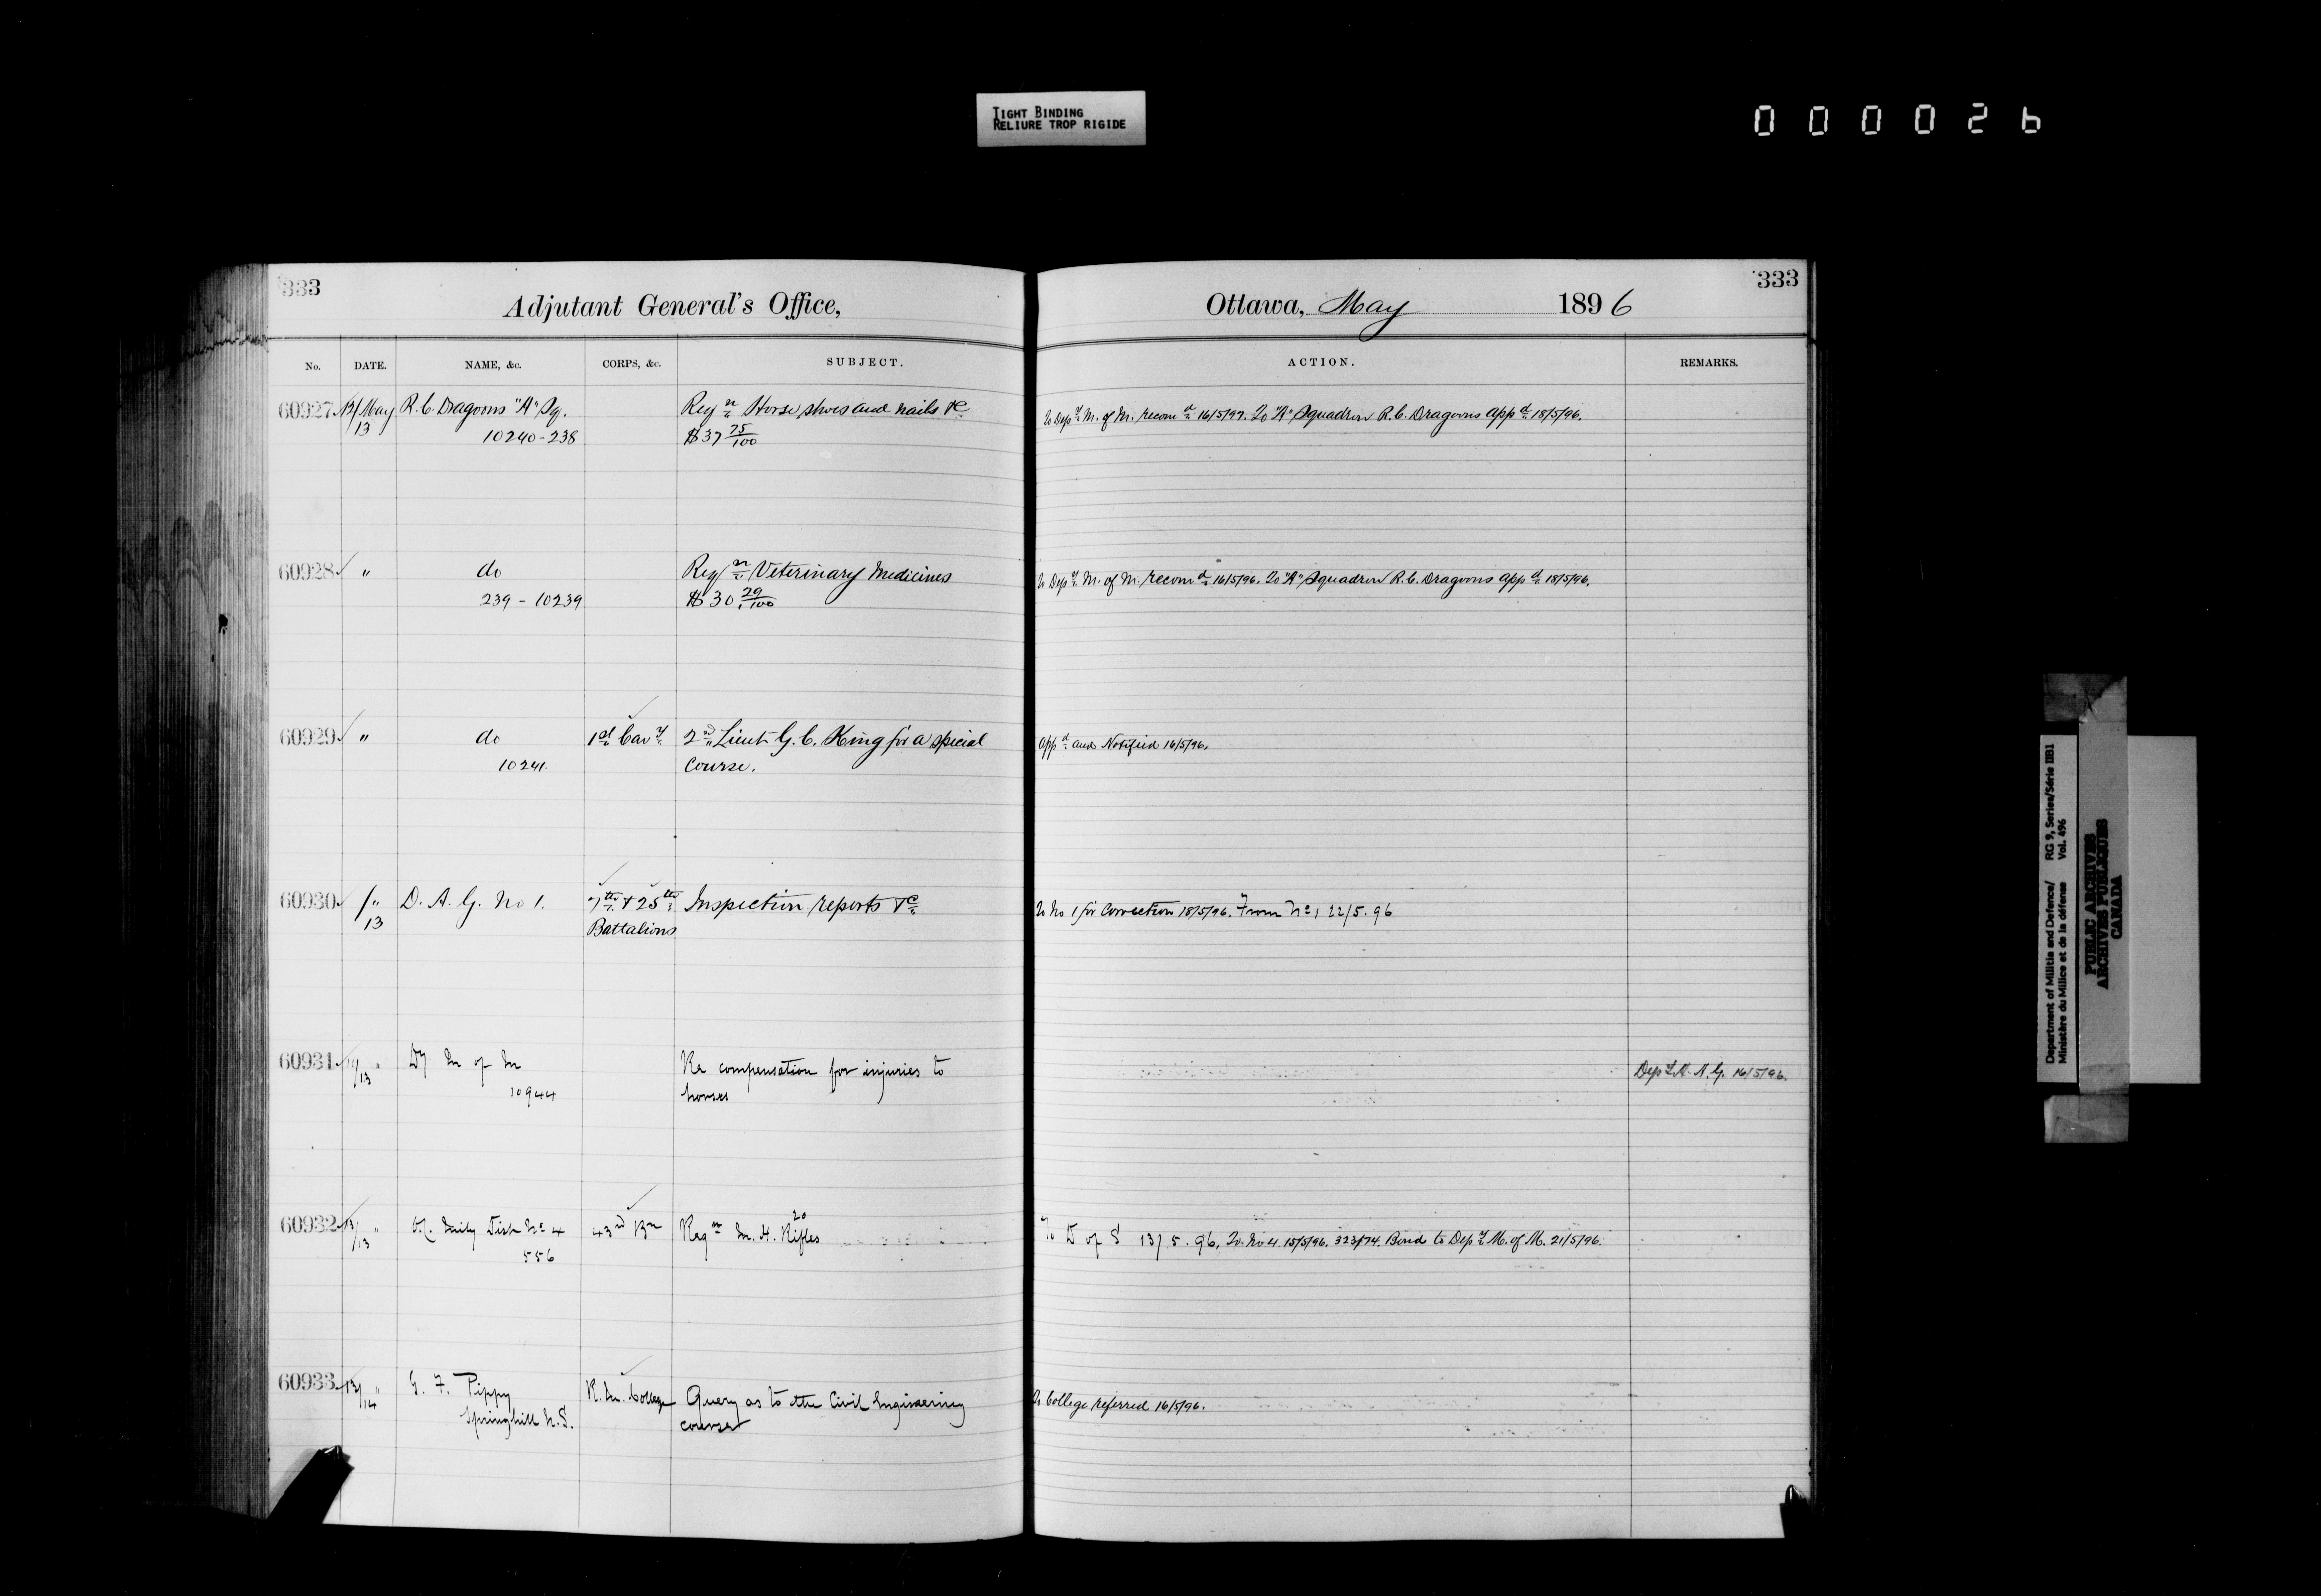 TIGHT BINDING
RELIURE TROP RIGIDE
000026
333
Adjutant General's Office,
No. DATE. NAME, &c. CORPS, &c. SUBJECT.
60927 12/May R.C. Dragoons "A" Sq. Reqn Horse shoes and nails &c
13 10240-238 $37 75/100
60928 " do Reqn Veterinary Medicines
239 - 10239 $30 29/100
60929 " do 1st Cavy 2nd Lieut G. C. King for a special
10241. Course.
60930 " D. A. G. No 1. 7th & 25th Inspection reports &c
13 Battalions
60931 " Dy M of M Re compensation for injuries to
13 10944 horses
60932 " Mily Dist No 4 43rd Bn Reqn 20 M. H. Rifles
13 556
60933 13/ " G. F. Pippy R. M. College Query as to the Civil Engineering
14 Springhill N.S. course
333
Ottawa, May 1896
ACTION. REMARKS.
To Depy M. of M. recomd 16/5/97. To "A" Squadron R.C. Dragoons appd 18/5/96.
To Depy M. of M. recomd 16/5/96. To "A" Squadron R.C. Dragoons appd 18/5/96.
Appd and Notified 16/5/96.
To No 1 for Correction 18/5/96. From No 1 22/5.96
Depy A. G. 16/5/96.
To D of S 13/5.96. To No 4. 15/5/96. 323/74. Bond to Depy M. of M. 21/5/96.
To College referred 16/5/96.
Department of Militia and Defence/ RG 9, Series/Série IIB1
Ministère du Milice et de la défense Vol. 496
PUBLIC ARCHIVES
ARCHIVES PUBLIQUES
CANADA